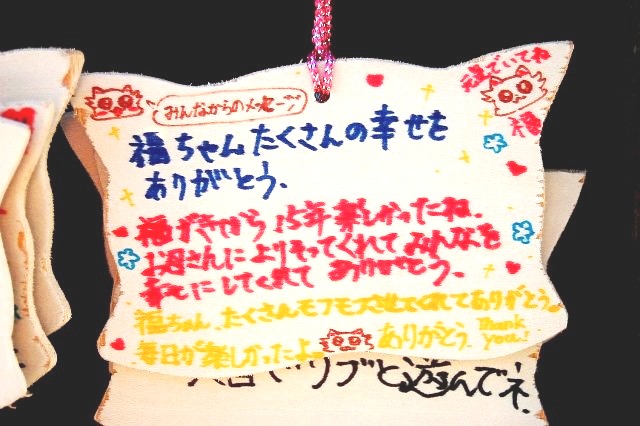 みんなからのメッセージ
元気でいてね
福
福ちゃんたくさんの幸せを
ありがとう。
福がきてから15年楽しかったね。
お母さんによりそってくれてみんなを
幸せにしてくれて ありがとう。
福ちゃん、たくさんモフモフさせてくれてありがとう。
毎日が楽しかったよ ありがとう。Thank you!
リブと遊んでネ.